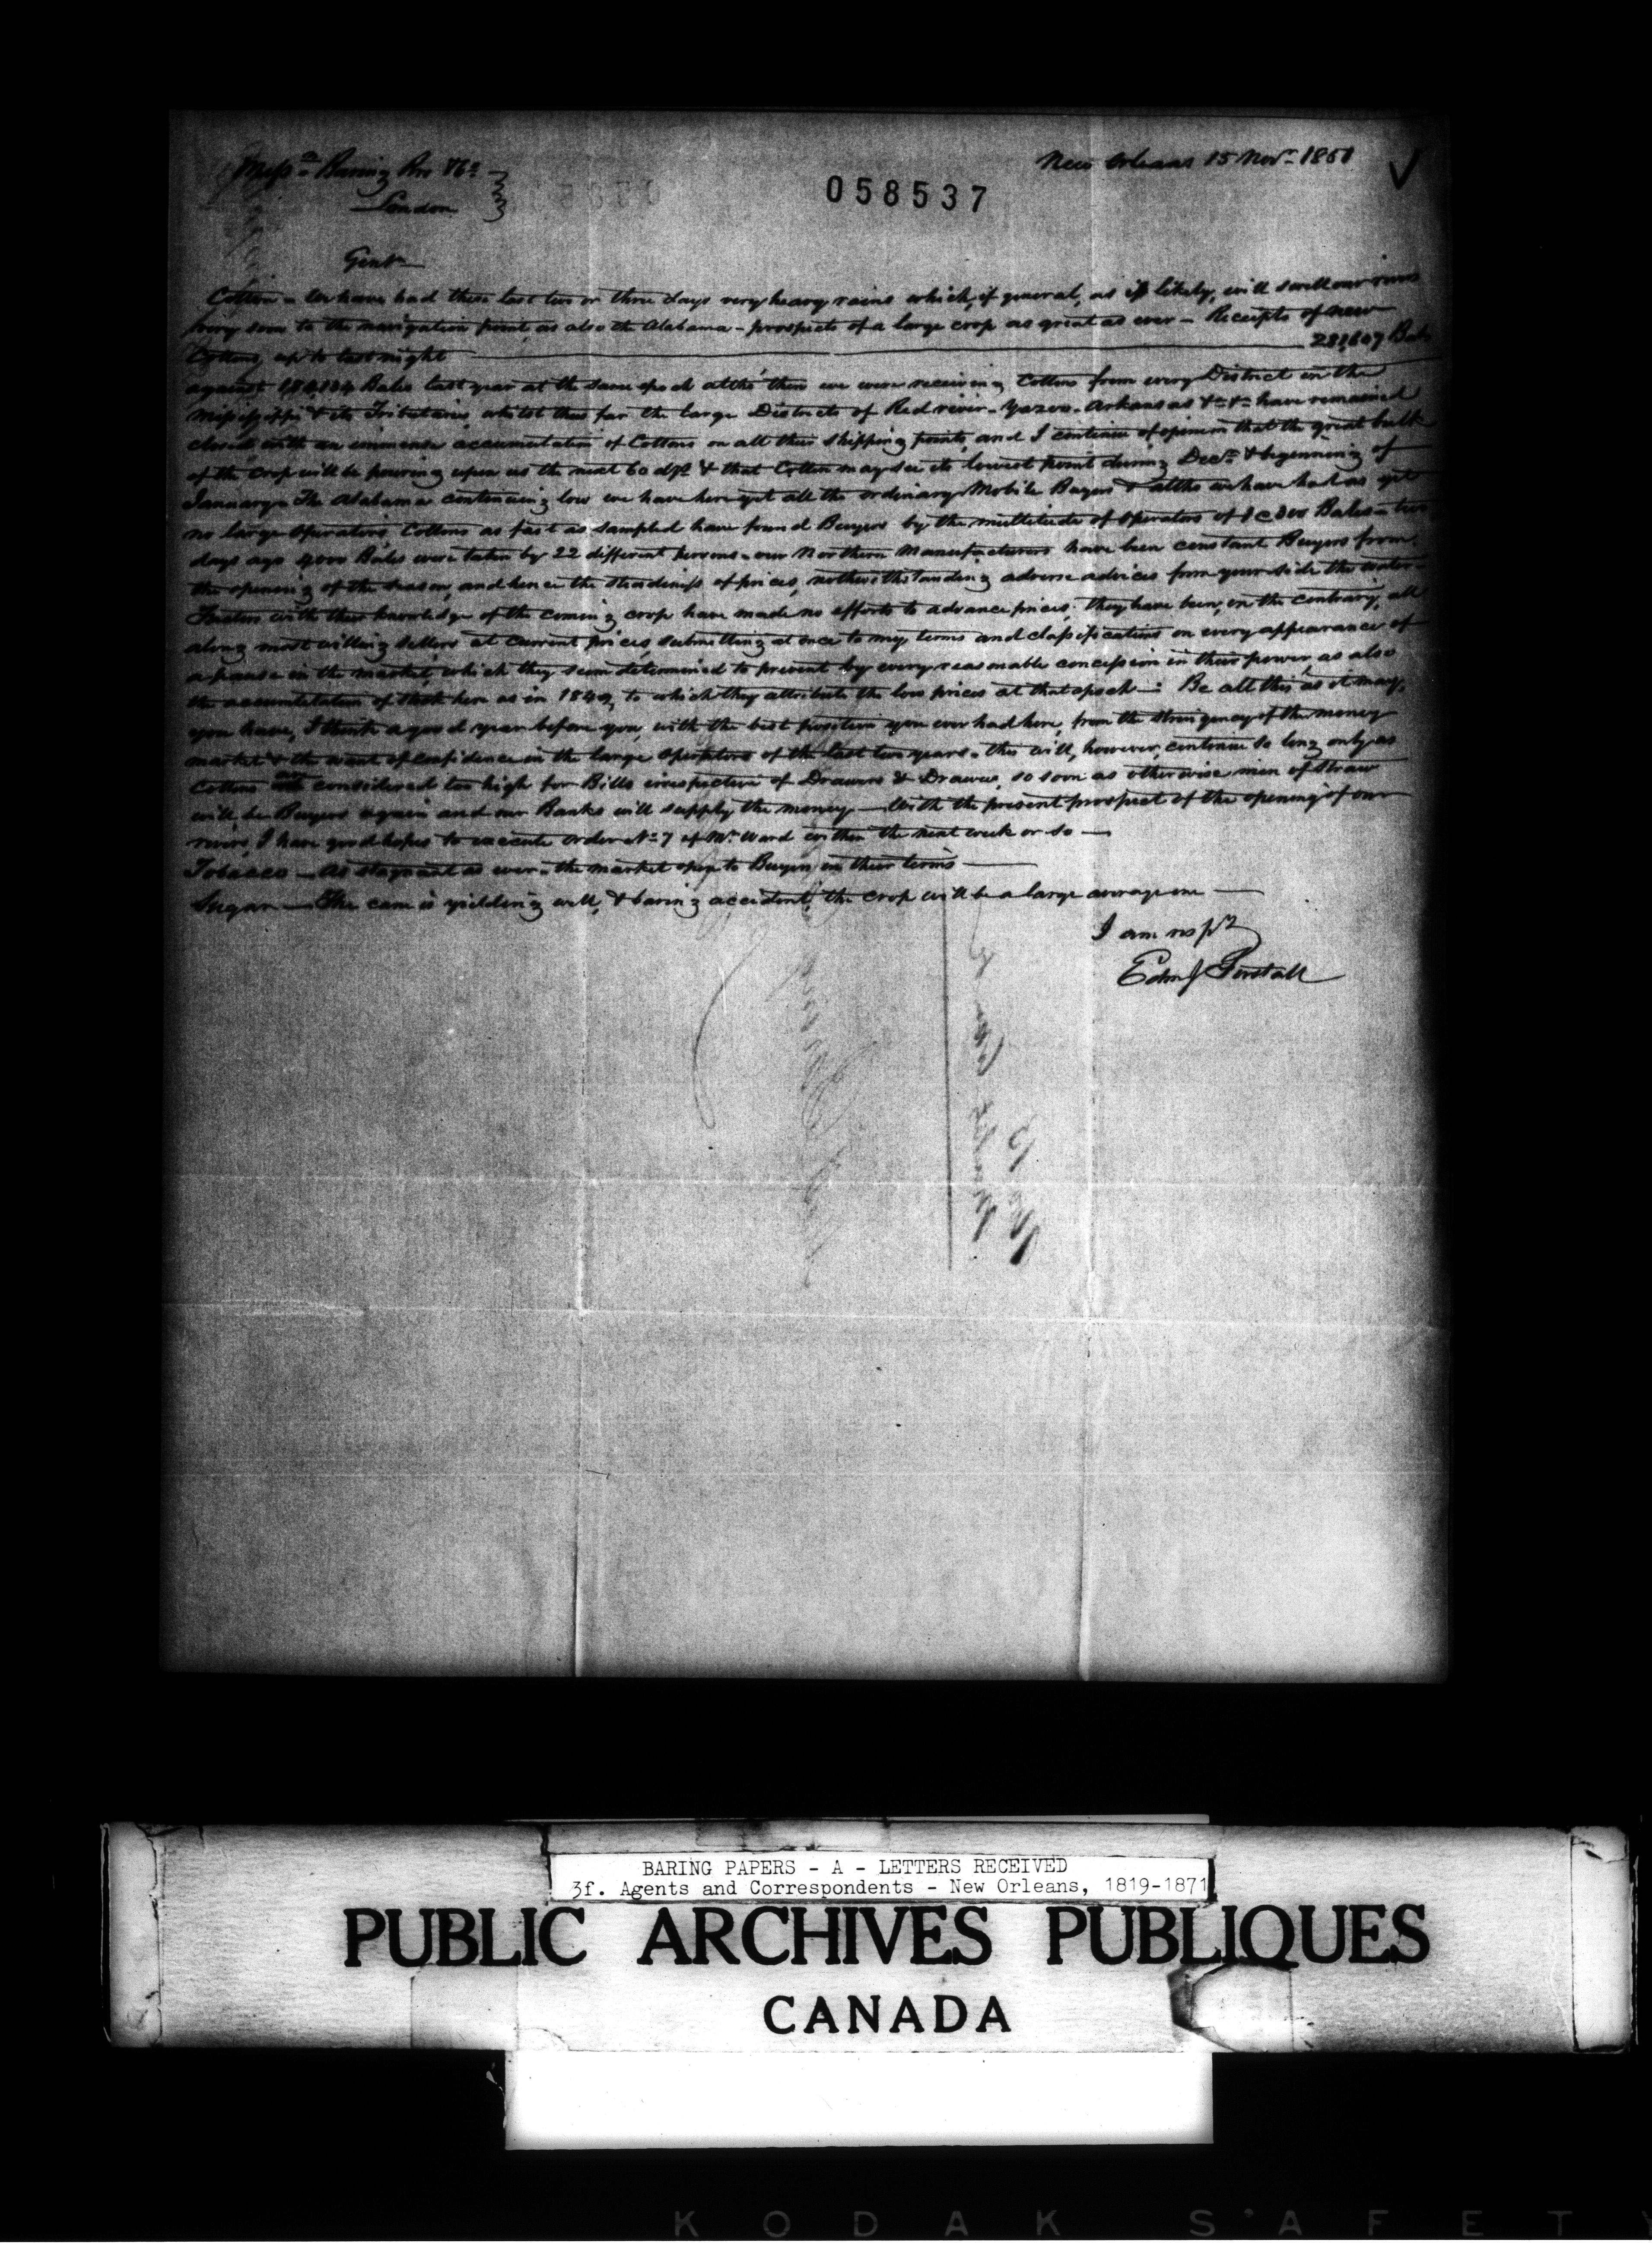 Messrs Baring Bro &Co
New Orleans 15 Novr 1851
London
058537
Gentn
Cotton - We have had these last two or three days very heavy rains which, if general, as is likely, will swell our rivers
very soon to the navigation point, as also the Alabama - prospects of a large crop as great as ever - Receipts of new
Cottons, up to last night Bales
against Bales last year at the same epoch altho' then we were receiving Cottons from every District on the
Mississippi & its Tributaries, whilst thus far the large Districts of Red river - Yazoo - Arkansas &c &c have remained
closed with an immense accumulation of Cottons on all their shipping points, and I continue of opinion that the great bulk
of the crop will be pouring upon us the next 60 dys & that Cotton may see its lowest point during Decr & beginning of
January - The Alabama continuing low we have here yet all the ordinary Mobile Buyers & altho we have had as yet
no large operators Cottons as fast as sampled have found Buyers by the multitude of operators of Bales - two
days ago 4000 Bales were taken by 22 different persons - our Northern Manufacturers have been constant Buyers from
the opening of the season, and hence the steadiness of prices, nothwithstanding adverse advices from your side the water -
Factors with their knowledge of the coming crop have made no efforts to advance prices. they have been, on the contrary, all
along most willing sellers at current prices, submitting at once to my terms and classifications on every appearance of
a pause in the market, which they seem determined to prevent by every reasonable concession in their power, as also
the accumulation of stock here as in 1849, to which they attribute the low prices at that epoch -: Be all this as it may,
you have, I think a good year before you, with the best position you ever had here, from the stringency of the money
market & the want of confidence in the large operators of the last two years. this will, however, continue so long only as
Cottons are considered too high for Bills irrespective of Drawers & Drawees, so soon as otherwise men of Straw
will be Buyers again and our Banks will supply the money - With the present prospect of the opening of our
rivers, I have good hopes to execute order No 7 of Mr Ward within the next week or so -
Tobacco - As stagnant as ever - the market open to Buyers on their terms -
Sugar - The cane is yielding well, & baring accident, the crop will be a large average one -
I am respy
Edm J Forstall
BARING PAPERS - A - LETTERS RECEIVED
3f. Agents and Correspondents - New Orleans, 1819-1871
PUBLIC ARCHIVES PUBLIQUES
CANADA
KODAK SAFETY